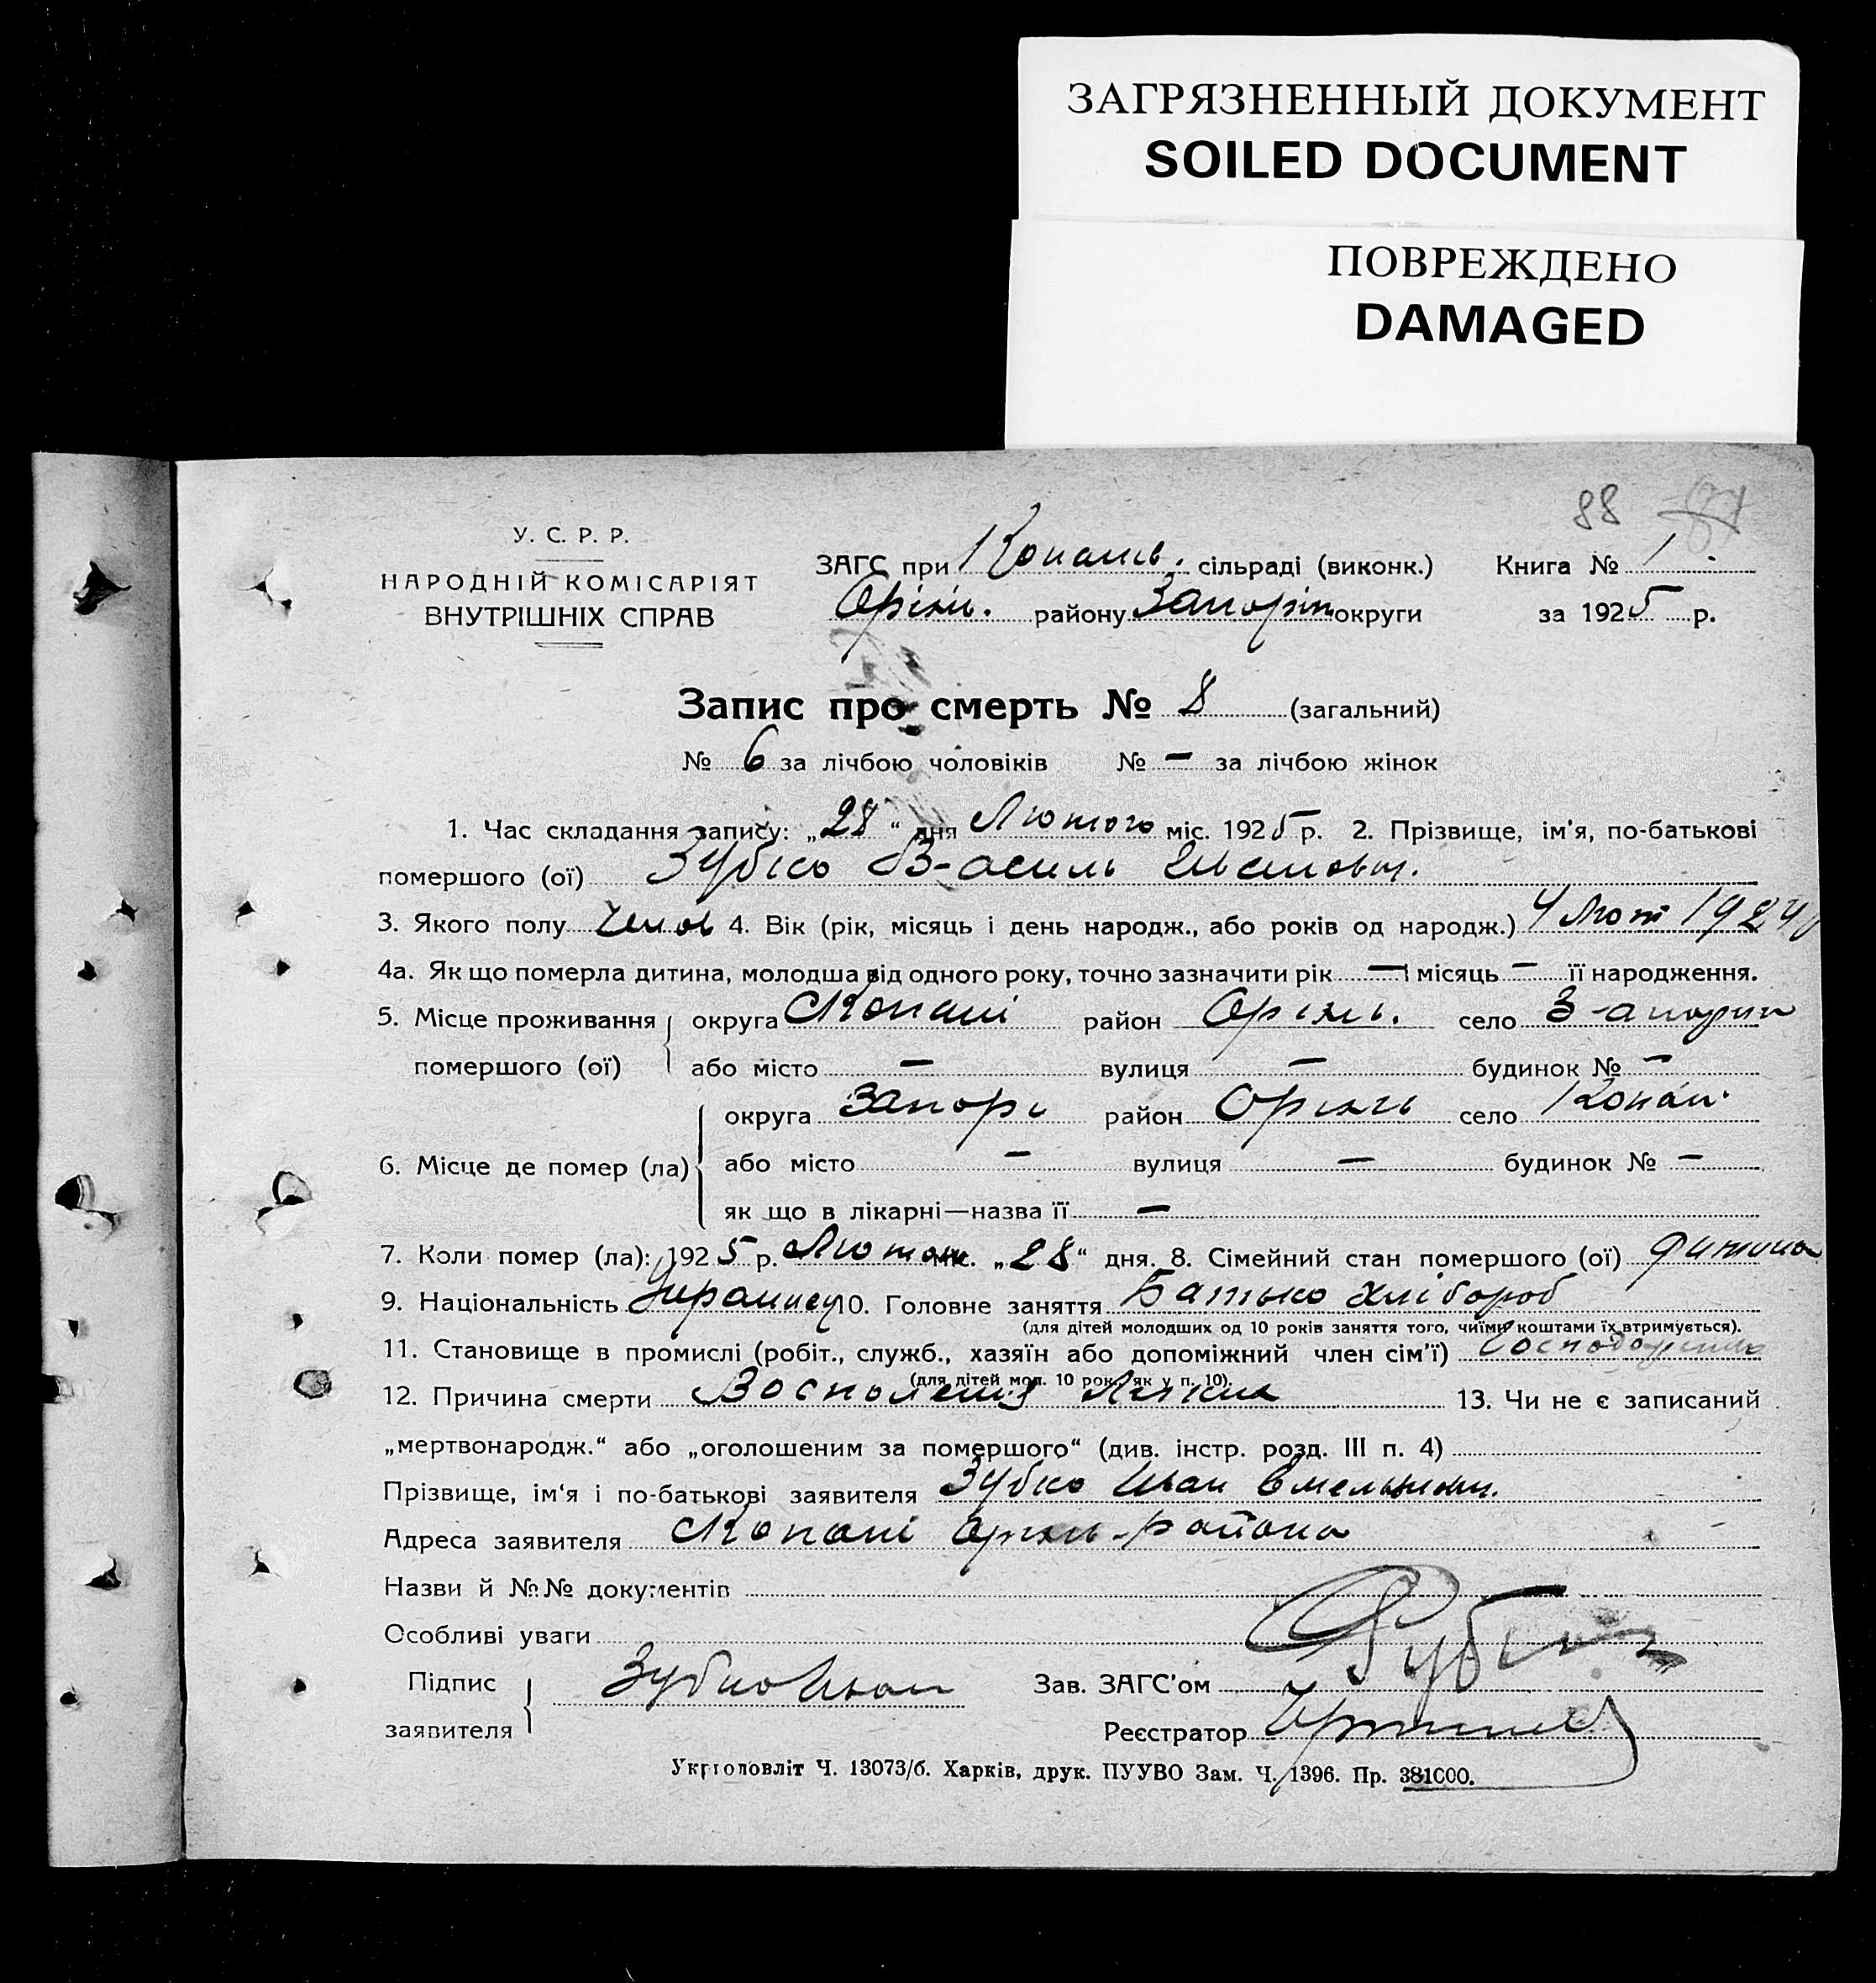 ЗАГРЯЗНЕННЫЙ ДОКУМЕНТ
SOILED DOCUMENT
ПОВРЕЖДЕНО
DAMAGED
88
У. С. Р. Р.
НАРОДНІЙ КОМІСАРІЯТ
ВНУТРІШНІХ СПРАВ
ЗАГС при Копанів. сільраді (виконк.)
Оріхів. району Запоріж округи
Книга № 1
за 1925 р.
Запис про смерть № 8 (загальний)
№ 6 за лічбою чоловіків № — за лічбою жінок
1. Час складання запису: „28“ дня Лютого міс. 1925 р. 2. Прізвище, ім'я, по-батькові
помершого (ої) Зубко Василь Іванович.
3. Якого полу 4. Вік (рік, місяць і день народж., або років од народж.) 4 Лют 1924
4а. Як що померла дитина, молодша від одного року, точно зазначити рік — і місяць — її народження.
5. Місце проживання округа Копані район Оріхів. село Запоріж
помершого (ої) або місто — вулиця — будинок № —
округа Запорі район Оріхів село Копан.
6. Місце де помер (ла) або місто — вулиця — будинок № —
як що в лікарні—назва її —
7. Коли помер (ла): 1925 р. Лютого міс. „28“ дня. 8. Сімейний стан помершого (ої) дитина
9. Національність 10. Головне заняття Батько хлібороб
(для дітей молодших од 10 років заняття того, чиїми коштами їх втримується).
11. Становище в промислі (робіт., служб., хазяїн або допоміжний член сім'ї)
(для дітей мол. 10 рок. як у п. 10).
12. Причина смерти Воспаления 13. Чи не є записаний
„мертвонародж.“ або „оголошеним за помершого“ (див. інстр. розд. III п. 4)
Прізвище, ім'я і по-батькові заявителя Зубко Иван
Адреса заявителя Копані Оріхів района
Назви й №№ документів
Особливі уваги
Підпис заявителя Зубко Иван
Зав. ЗАГС'ом
Реєстратор
Укрголовліт Ч. 13073/б. Харків, друк. ПУУВО Зам. Ч. 1396. Пр. 381000.